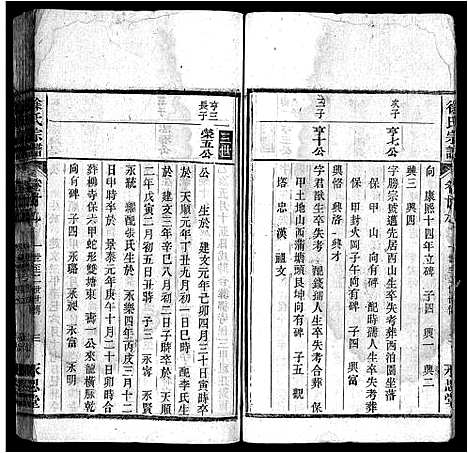 徐氏宗譜
向 康熙十四年立碑 子四 興一 興二
興三 興四
次子 亨七公
字勝宗號遵先居西山生卒失考葬西泊園坐落
甲山 向有碑 配時揚人生卒失考
甲封火岡子午向有碑 子四 興富
興怡 興洛 興才
三子 亨十公
字君獸生卒失考 配錢揚人生卒失考合葬
甲土地山西蒲塘頭艮坤向有碑 子五 觀
塔 忠 漢 禮 文
永思堂
三世
亨三長子 榮五公
公 生於 建文元年己卯四月三十日寅時
於 天順元年丁丑九月初一日巳時 配李氏生
於 建文三年辛巳八月初二日子時卒於
二年戊寅二月初五日丑時 子三 永賢
永琥 繼配張氏生於 永樂四年丙戌三月十二
日申時卒於 景泰元年庚午十月二十日卯時合
葬柳寺保六甲蛇形雙塘東 喬一公來龍橫脉乾
向有碑 子四 永璐 永富 永明
徐氏宗譜
永思堂